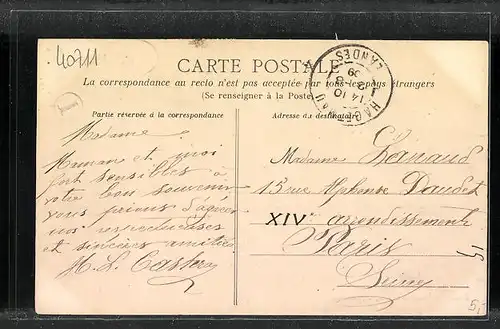 40711
CARTE POSTALE
La correspondance au recto n'est pas acceptée par tous les pays étrangers
(Se renseigner à la Poste)
HAGETMAU
LANDES
14
10
Partie réservée à la correspondance
Adresse du destinataire
Madame,
Maman et moi
fort sensibles à
votre bon souvenir
vous prions d'agréer
nos respectueuses
et sincères amitiés
M. L. Castera
Madame
13 rue Alphonse Daudet
XIV arrondissement
Paris
Seine